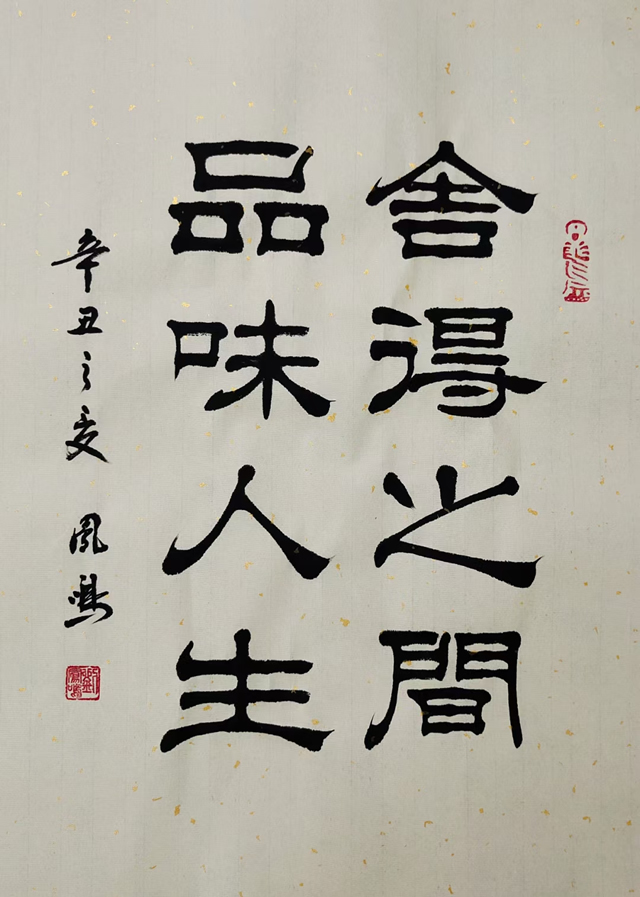 舍得之間
品味人生
辛丑之夏 鳳鳴